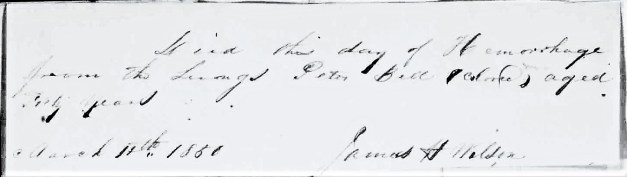 Died this day of Hemorrhage
from the Lungs Peter Bell (Colored) aged
Forty years
March 11th. 1850 James H Wilson